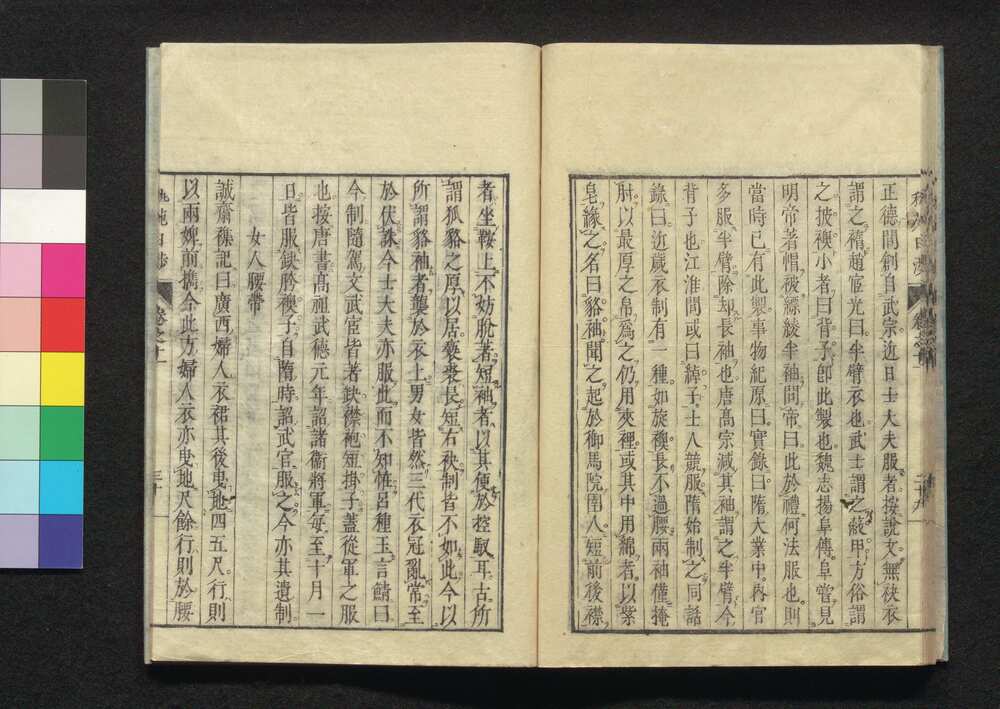 正德間創自武宗近日士大夫服者按說文無袂衣
謂之䙃趙宧光曰半臂衣也武士謂之蔽甲方俗謂
之披襖小者曰背子卽此製也魏志揚阜傳阜嘗見
明帝著帽被縹綾半袖問帝曰此於禮何法服也則
當時已有此製事物紀原曰實錄曰隋大業中內官
多服半臂除却長袖也唐髙宗減其袖謂之半臂今
背子也江淮間或曰綽子士人競服隋始制之同話
錄曰近歲衣制有一種如旋襖長不過腰兩袖僅掩
肘以最厚之帛爲之仍用夾裡或其中用綿者以紫
皂緣之名曰貉袖聞之起於御馬院圉人短前後襟
者坐鞍上不妨脫著短袖者以其便於控馭耳古所
謂狐貉之厚以居褻裘長短右袂制皆不如此今以
所謂貉袖者襲於衣上男女皆然三代衣冠亂常至
於伏誅今士大夫亦服此而不知怪呂種玉言鯖曰
今制隨駕文武宦皆著缺襟袍短掛子蓋從軍之服
也按唐書髙祖武德元年詔諸衞將軍每至十月一
日皆服缺胯襖子自隋時詔武官服之今亦其遺制
女人腰帶
誠齋襍記曰廣西婦人衣裙其後曳地四五尺行則
以兩婢前攜今此方婦人衣亦曳地尺餘行則於腰
卷之十一